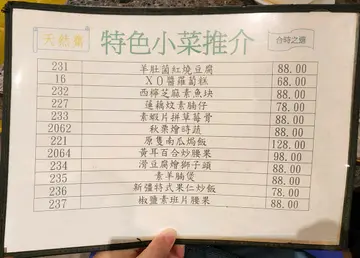 天然齋
特色小菜推介
合時之選
231 羊肚菌紅燒豆腐 88.00
16 XO醬蘿蔔糕 68.00
232 西檸芝麻素魚块 88.00
227 蓮藕炆素腩仔 78.00
233 素蝦片拼草莓骨 88.00
2062 秋栗燴時蔬 88.00
221 原隻南瓜焗飯 128.00
2064 黃耳百合炒腰果 98.00
234 滑豆腐燴獅子頭 88.00
235 素羊腩煲 88.00
236 新疆特式果仁炒飯 78.00
237 椒鹽素班片腰果 88.00